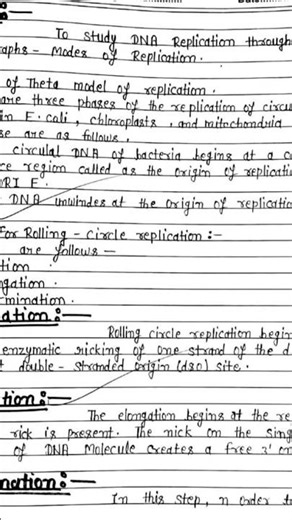 To study DNA Replication through
aphs - Modes of Replication.
of Theta model of replication.
are three phases of the replication of circu
in E. coli, chloroplasts, and mitochondria
se are as follows.
circular DNA of bacteria begins at a
ce region called as the origin of replicati
ORI E.
DNA unwindes at the origin of replicatio
For Rolling - Circle replication :-
are follows -
tion
ngation.
rmination.
ation :-
Rolling circle replication begin
enzymatic nicking of one strand of the d
t double - stranded origin (dso) site.
tion :-
The elongation begins at the re
nick is present. The nick on the sing
of DNA Molecule creates a free 3' on
nation :-
In this step, n order to